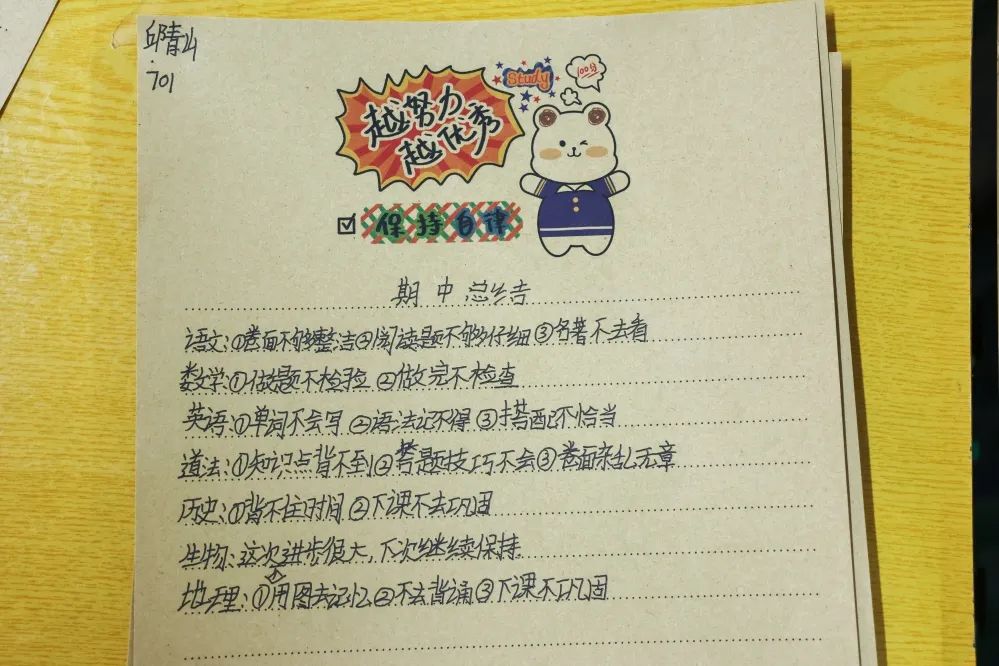 邱青山
701
Study
100分
越努力
越优秀
保持自律
期中总结
语文:①卷面不够整洁②阅读题不够仔细③名著不去看
数学①做题不检验 ②做完不检查
英语:①单词不会写 ②语法记不得 ③搭配不恰当
道法:①知识点背不到②答题技巧不会③卷面杂乱无章
历史:①背不住时间 ②下课不去巩固
生物:这次进步很大,下次继续保持
地理:①不用图去记忆②不去背诵③下课不巩固